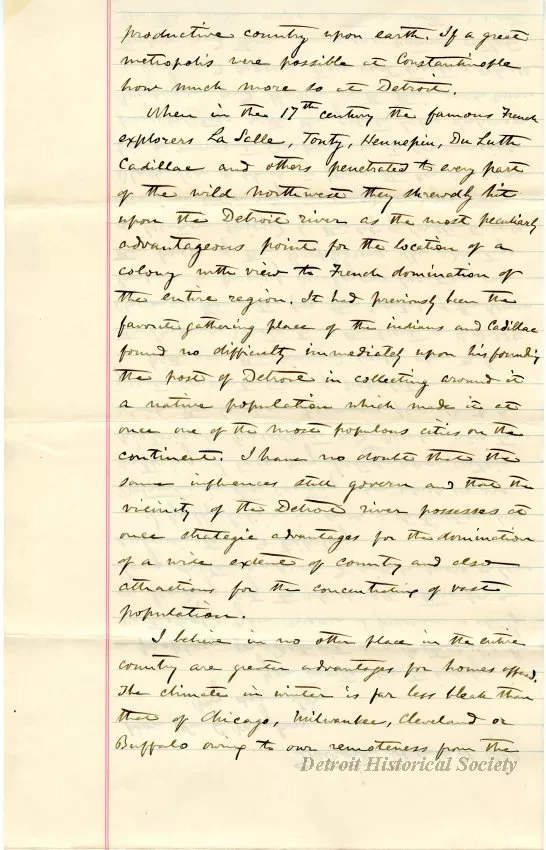 productive country upon earth. If a great
metropolis were possible at Constantinople
how much more so at Detroit.
When in the 17th century the famous French
explorers La Salle, Tonty, Hennepin, Du Luth
Cadillac and others penetrated to every part
of the wild northwest they shrewdly hit
upon the Detroit river as the most peculiarly
advantageous point for the location of a
colony with view to French domination of
the entire region. It had previously been the
favorite gathering place of the indians and Cadillac
found no difficulty immediately upon his founding
the post of Detroit in collecting around it
a native population which made it at
once one of the most populous cities on the
continent. I have no doubt that the
same influences still govern and that the
vicinity of the Detroit river possesses at
once strategic advantages for the domination
of a wide extent of country and also
attractions for the concentrating of vast
population.
I believe in no other place in the entire
country are greater advantages for homes offered.
The climate in winter is far less bleak than
that of Chicago, Milwaukee, Cleveland or
Buffalo owing to our remoteness from the
Detroit Historical Society